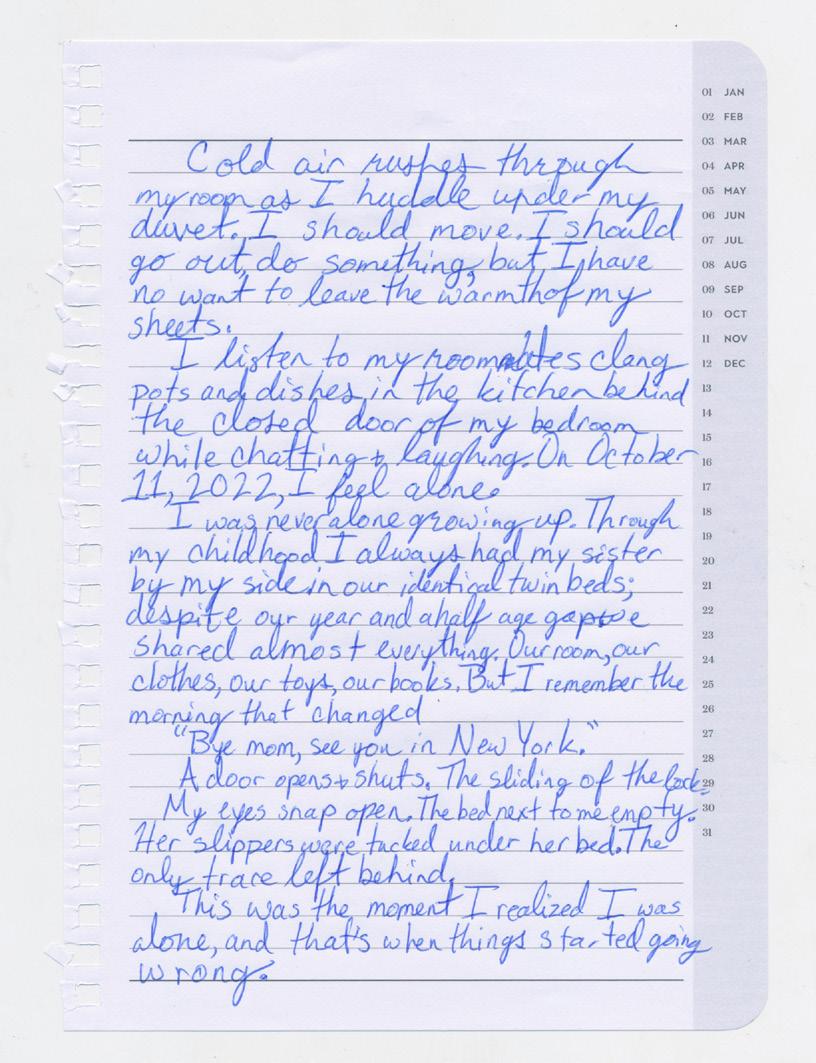 Cold air rushes through
my room as I huddle under my
duvet. I should move. I should
go out, do something, but I have
no want to leave the warmth of my
sheets.
I listen to my roommates clang
pots and dishes in the kitchen behind
the closed door of my bedroom
while chatting + laughing. On October
11, 2022, I feel alone.
I was never alone growing up. Through
my childhood I always had my sister
by my side in our identical twin beds;
despite our year and a half age gap we
shared almost everything. Our room, our
clothes, our toys, our books. But I remember the
morning that changed
"Bye mom, see you in New York."
A door opens + shuts. The sliding of the lock.
My eyes snap open. The bed next to me empty.
Her slippers were tucked under her bed. The
only trace left behind.
This was the moment I realized I was
alone, and that's when things started going
wrong.
01 JAN
02 FEB
03 MAR
04 APR
05 MAY
06 JUN
07 JUL
08 AUG
09 SEP
10 OCT
11 NOV
12 DEC
13
14
15
16
17
18
19
20
21
22
23
24
25
26
27
28
29
30
31